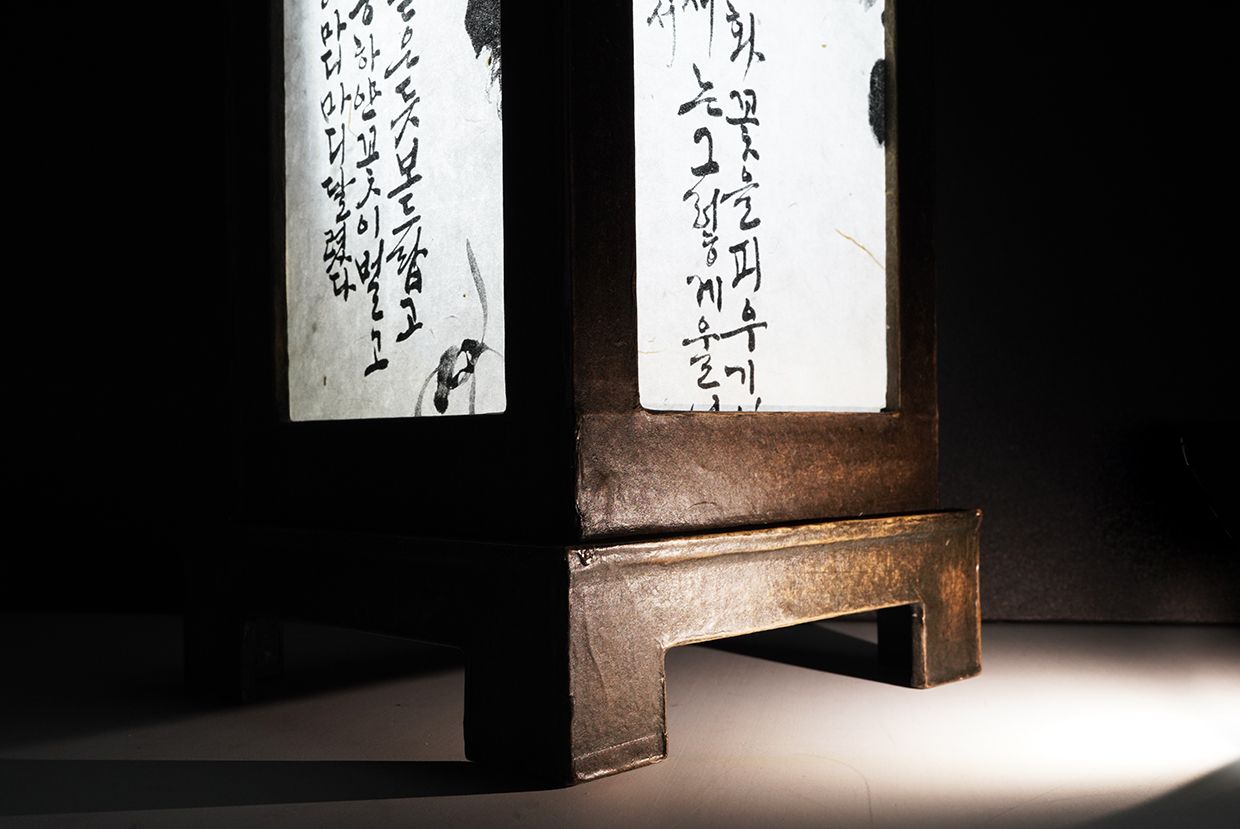 은듯보드랍고
공하얀꽃이벌고
마디마디달렸다
화꽃을피우기
새는그렇게울
서